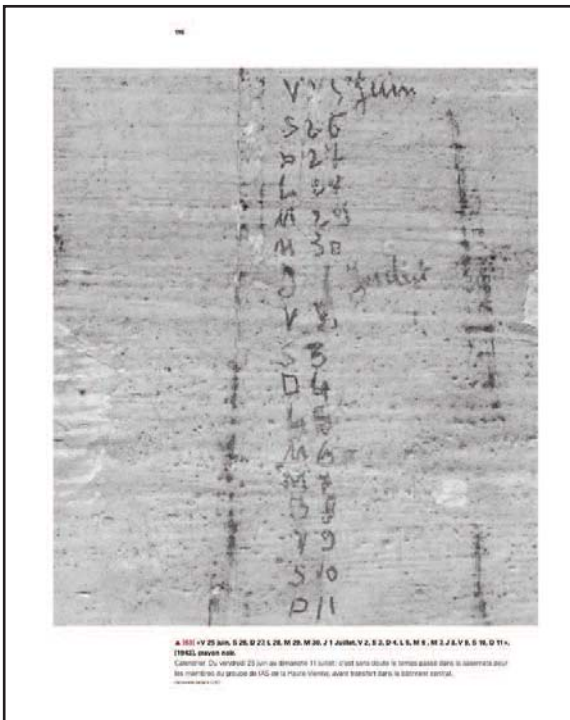 V 25 juin
S 26
D 27
L
M 29
M 30
J 1 Juillet
V 2
S 3
D 4
L 5
M 6
M 7
J 8
V 9
S 10
D 11
«V 25 juin, S 26, D 27, L 28, M 29, M 30, J 1 Juillet, V 2, S 3, D 4, L 5, M 6, M 7, J 8, V 9, S 10, D 11»,
[1943], crayon noir.
Calendrier. Du vendredi 25 juin au dimanche 11 juillet: c'est sans doute le temps passé dans la casemate pour
les membres du groupe de l'AS de la Haute-Vienne, avant transfert dans le bâtiment central.